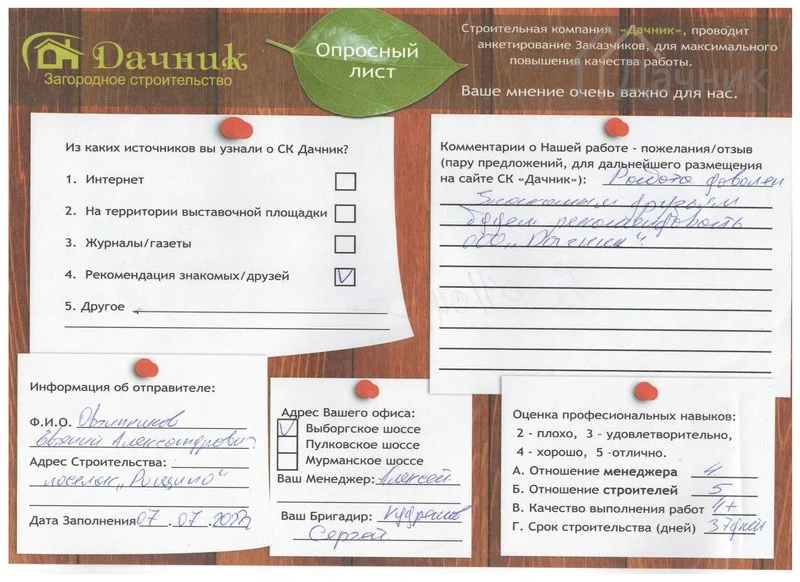 Дачник
Загородное строительство
Опросный
лист
Строительная компания «Дачник», проводит
анкетирование Заказчиков, для максимального
повышения качества работы.
Ваше мнение очень важно для нас.
Дачник
Из каких источников вы узнали о СК Дачник?
1. Интернет
2. На территории выставочной площадки
3. Журналы/газеты
4. Рекомендация знакомых/друзей V
5. Другое
Комментарии о Нашей работе - пожелания/отзыв
(пару предложений, для дальнейшего размещения
на сайте СК «Дачник»): Работа доволен
Знакомым друзьям
будем рекомендовать
ООО „Дачник".
Информация об отправителе:
Ф.И.О. Овчинников
Евгений Александрович
Адрес Строительства:
поселок „Рощино"
Дата Заполнения 07.07.202
Адрес Вашего офиса:
V Выборгское шоссе
Пулковское шоссе
Мурманское шоссе
Ваш Менеджер: Алексей
Ваш Бригадир: Кудряшов
Сергей
Оценка професиональных навыков:
2 - плохо, 3 - удовлетворительно,
4 - хорошо, 5 -отлично.
А. Отношение менеджера 4
Б. Отношение строителей 5
В. Качество выполнения работ 4+
Г. Срок строительства (дней) 37дней